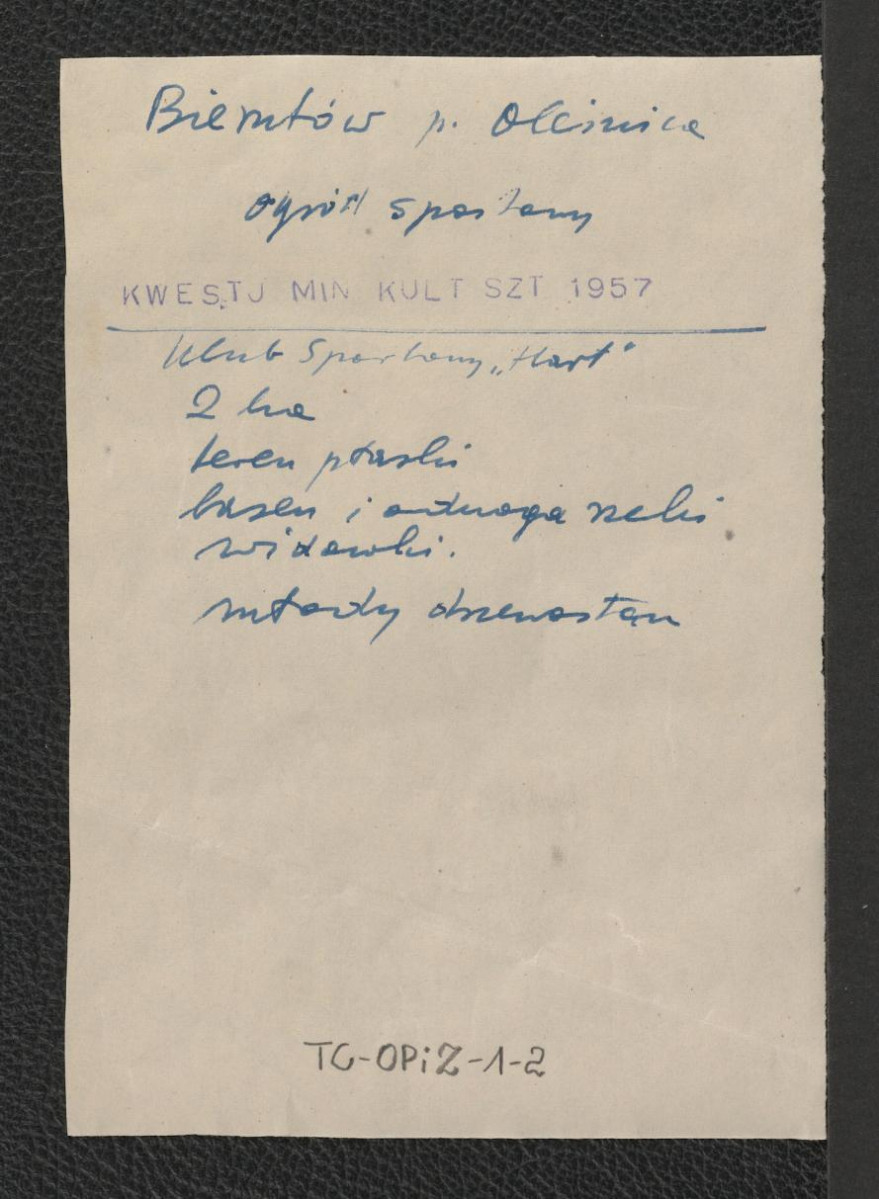 Bierutów p. Oleśnica
ogród sportowy
KWESTJ MIN KULT SZT 1957
Klub Sportowy „Hart"
2 ha
teren płaski
basen i odnoga rzeki
widawki.
młody drzewostan
TG-OPiZ-1-2